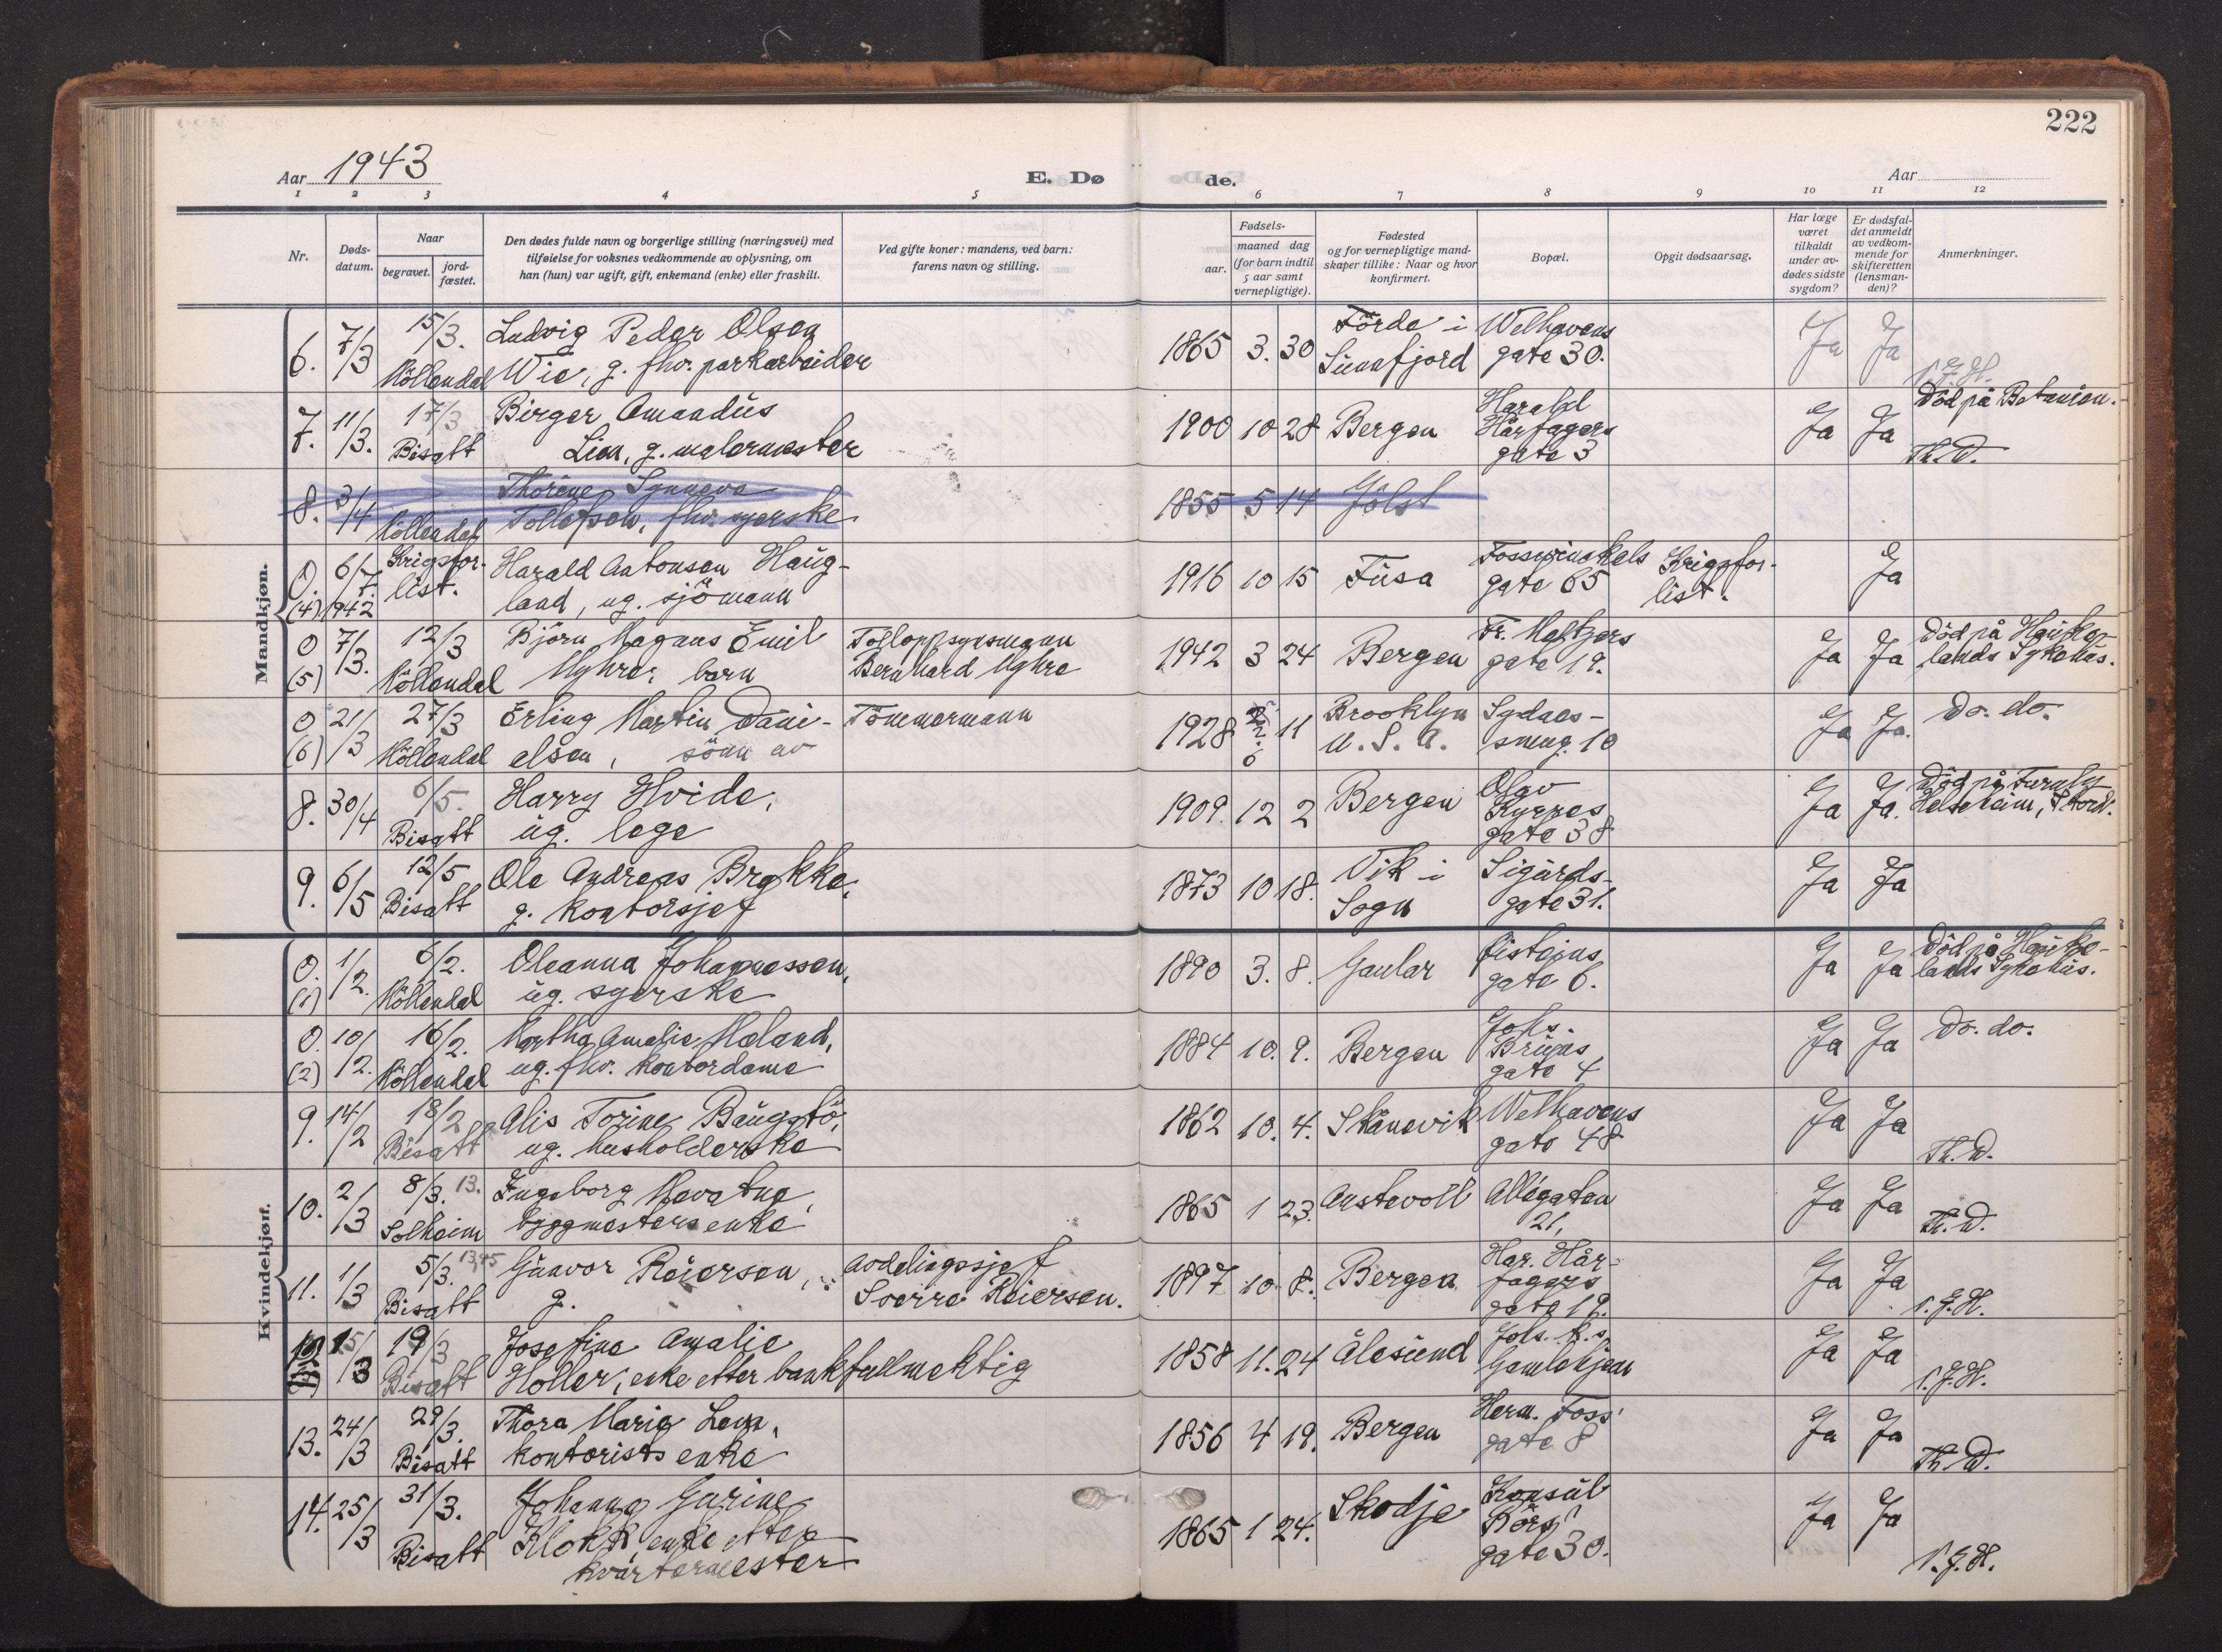 222
Aar 1943
E. Dø de.
Aar
1 2 3 4 5 6 7 8 9 10 11 12
Nr.
Døds-
datum.
Naar
begravet.
jord-
fæstet.
Den dødes fulde navn og borgerlige stilling (næringsvei) med
tilføielse for voksnes vedkommende av oplysning, om
han (hun) var ugift, gift, enkemand (enke) eller fraskilt.
Ved gifte koner: mandens, ved barn:
farens navn og stilling.
Fødsels-
aar.
maaned dag
(for barn indtil
5 aar samt
vernepligtige).
Fødested
og for vernepligtige mand-
skaper tillike: Naar og hvor
konfirmert.
Bopæl.
Opgit dødsaarsag.
Har læge
været
tilkaldt
under av-
dødes sidste
sygdom?
Er dødsfal-
det anmeldt
av vedkom-
mende for
skifteretten
(lensman-
den)?
Anmerkninger.
Mandkjøn.
6. 7/3 15/3. Ludvig Peder Olsen 1865 3. 30 Förde i Welhavens Ja Ja
Möllendal Wie, g. fhv. parkarbeider Sunnfjord gate 30.
7. 11/3. 17/3 Birger Amandus 1900 10 28 Bergen Harald Ja Ja Död på Betanien.
Bisatt Lien, g. malermester Hårfagers
gate 3 Th. D.
8. 3/4 Thorine Synneva 1855 5 14 Jölst
Möllendal Tollefsen, fhv. syerske
0. 6/7. Krigsfor- Harald Antonsen Haug- 1916 10 15 Fusa Fosswinckels Krigsfor- Ja
(4) 1942 list. land, ug. sjömann gate 65 list.
0 7/3. 12/3 Björn Magnus Emil Tolloppsynsmann 1942 3 24 Bergen Fr. Meltzers Ja Ja Död på Hauke-
(5) Möllendal Myhre, barn Bernhard Myhre gate 19. lands Sykehus.
0 21/3 27/3 Erling Martin Dani- Tömmermann 1928 11 Brooklyn Sydnes- Ja Ja. Do. do.
(6) Möllendal elsen, sönn av U. S. A. smug. 10
8. 30/4 6/5. Harry Hvide, 1909. 12 2 Bergen Olav Ja Ja. Död på Furuly
Bisatt ug. lege Kyrres Helseheim, Stord.
gate 38
9. 6/5 12/5 Ole Andreas Brekke, 1873 10 18. Vik i Sigurds- Ja Ja
Bisatt g. kontorsjef Sogn gate 31.
Kvindekjøn.
0. 1/2. 6/2. Oleanna Johannessen, 1890 3. 8. Gaular Öisteins Ja Ja Död på Hauke-
(1) Möllendal ug. syerske gate 6. lands Sykehus.
0. 10/2. 16/2. Martha Amalie Mæland, 1884 10. 9. Bergen Johs. Ja Ja Do. do.
(2) Möllendal ug. fhv. kontordame Bruns
gate 4
9. 14/2 18/2 Alis Torine Baugstö, 1862 10. 4. Skånevik Welhavens Ja Ja
Bisatt ug. husholderske gate 48 Th. D.
10. 2/3 8/3. 13. Ingeborg Mavatne, 1865 1 23. Austevoll Allégaten Ja Ja
Solheim byggmesters enke 21, Th. D.
11. 1/3 5/3. 13,45 Gunvor Reiersen, avdelingssjef 1897 10. 8. Bergen Har. Hår- Ja Ja
Bisatt g. Sverre Reiersen. fagers
gate 19.
15/3 19/3 Josefine Amalie 1858 11. 24 Ålesund Ja Ja
Bisatt Holler, enke etter bankfullmektig Gamlehjem
13. 24/3 29/3. Thora Marie Lem, 1856 4 19. Bergen Herm. Foss' Ja Ja
Bisatt kontorists enke gate 8 Th. D.
14. 25/3 31/3. Johanna Gurine 1865 1 24. Skodje Konsul Ja Ja
Bisatt Klokk, enke etter Börs'
kvartermester gate 30.